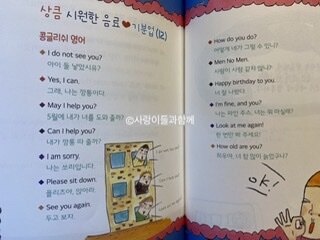 상큼 시원한 음료❤기분업 (12)
콩글리쉬 영어
I do not see you?
아이 둘 낳았시유?
Yes, I can.
그래, 나는 깡통이다.
May I help you?
5월에 내가 너를 도와 줄까?
Can I help you?
내가 깡통 따 줄까?
I am sorry.
나는 쏘리입니다.
Please sit down.
플리즈야, 앉아라.
See you again.
두고 보자.
How do you do?
어떻게 네가 그럴 수 있니?
Men No Men.
사람이 사람 같지 않니?
Happy birthday to you.
너 잘 나왔다.
I'm fine, and you?
나는 파인 주스, 너는 뭐 마실래?
Look at me again!
한 번만 봐 주세요!
How old are you?
OK!
©사랑이들과함께